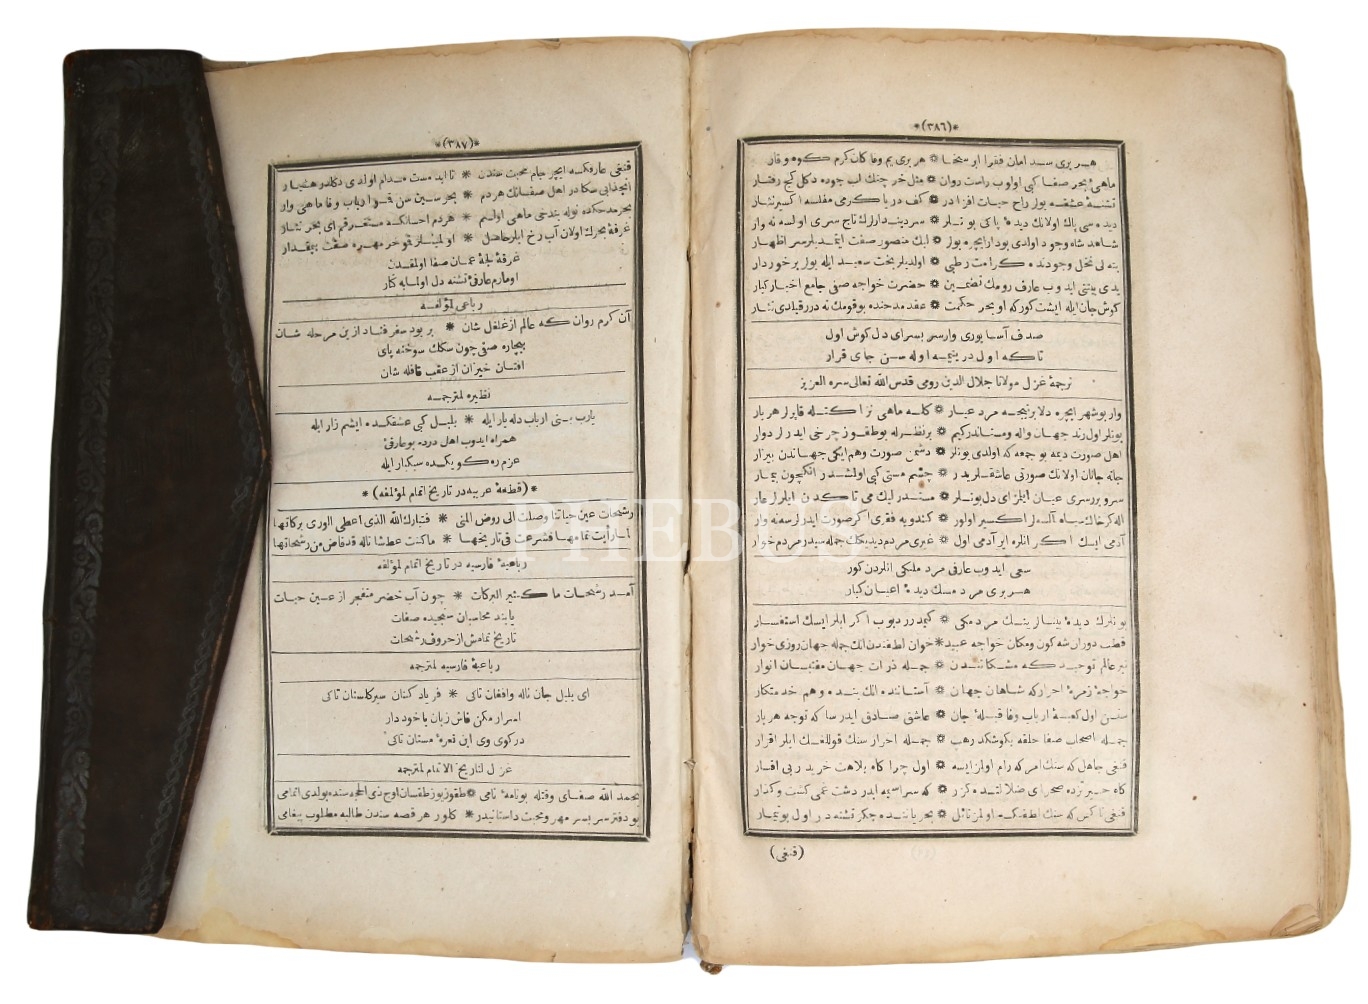 *(٣٨٦)*
هر بری سندامان فقرا ار سخا ❁ هر بری یم وفا کان کرم کوه وقار
ماهیٔ بحر صفا کبی اولوب راست روان ❁ مثل خرچنك اب جوده دکل کج رفتار
تشنهٔ عشقه بولر راح حیات افزادر ❁ کف دریا کرمی مفلسه اکسیر نثار
دیده سی پاك اولانك دیدهٔ پاکی بونلر ❁ سردیندارلرك تاج سری اولسه نه وار
شاهد شاه وجود اولدی بودارایچره بولر ❁ ایك منصور صفت ایتمدیلر سر اظهار
ینه لی نخل وجودنده کرامت رطبی ❁ اولدیلر بخت سعید ایله بولر برخوردار
یدی بیتنی ایدوب عارف رومك تضمین ❁ حضرت خواجه صفی جامع اخبار کبار
کوش جان ایله ایشت کورکه او بحر حکمت ❁ عقد مدحنده بوقومك نه درر قیلدی نثار
صدف آسا یوری وارسر بسرای دل کوش اول
تا که اول در یتیمه اوله سن جای قرار
ترجمهٔ غزل مولانا جلال الدین رومی قدس الله تعالی سره العزیز
وار بوشهر ایچره دلا برنیجه مرد عیار ❁ کله ماهی نزاکتله قاپارلر هر بار
بونلر اول رند جهان واله ومستاندرکیم ❁ برنظرله بوطقوز چرخی ایدرلر دوار
اهل صورت دیمه بو جمعه که اولدی بونلر ❁ دشمن صورت وهم ایکی جهاندن بیزار
جانه جانان اولانك صورتی عاشقلریدر ❁ چشم مستی کبی اولمشدر انکچون بیمار
سرو بر سری عیان ایلر ای دل بونلر ❁ مستدرلیك می تاکدن ایلرلر عار
اله کرخاك سیاه آلسه لر اکسیر اولور ❁ کندویه فقری اکر صورت ایدرلرسه نه وار
آدمی ایسك اکر انلره ایر آدمی اول ❁ غیری مردم دیدیکك جمله سیدر مردم خوار
سعی ایدوب عارفی مرد ملکی انلردن کور
هر بری مردمك دیدهٔ اعیان کبار
بونلرك دیدهٔ بینالرینك مردمکی ❁ کیمدر دیوب اکر ایلرایسك استفسار
قطب دوران شه کون ومکان خواجه عبید ❁ خوان لطفندن انك جمله جهان روزی خوار
نیر عالم توحید که مشکاتندن ❁ جمله ذرات جهان مقتبسان انوار
خواجهٔ زمرهٔ احرار که شاهان جهان ❁ آستانده انك بنده وهم خدمتکار
سنسن اول کعبهٔ ارباب وفا قبلهٔ جان ❁ عاشق صادق ایدر سا که توجه هر بار
جمله اصحاب صفا حلقه بکوشکدر هب ❁ جمله احرار سنك قوللغك ایلر اقرار
قنغی جاهل که سنك امرکه رام اولمز ایسه ❁ اول چراکاه بلاهت خریدر بی افسار
کاه حیرتزده صحرای ضلالتده کزر ❁ که سراسیمه ایدر دشت عمی کشت وکذار
قنغی ناکس که سنك لطفکه اولمز نائل ❁ بحر یاننده جکر تشنه در اول بوتیمار
(قنغی)
*(٣٨٧)*
قنغی عارفکه ایچر جام محبت سندن ❋ تا ابد مست مدام اولدی دکلدر هشیار
انجذابی سکادر اهل صفانك هر دم ❋ بحر سین سن قو ارباب وفا ماهی وار
بحر مدحکده نوله بندخی ماهی اولسم ❋ هر دم احسانکه مستغرقم ای بحر نثار
غرقهٔ بحرك اولان آب رخ ایلر حاصل ❋ اولمیانلر قو خر مهره صفت بیمقدار
غرقهٔ لجهٔ عمان صفا اولمقدن
اومارم عارفیٔ تشنه دل اولمایه کنار
رباعی لمؤلفه
آن کرم روان که عالم از غلغل شان ❋ بر بود سفر فتاد ازین مرحله شان
بیچاره صفی چون سکك سوخته پای
افتان خیزان از عقب قافله شان
نظیره لمترجمه
یارب منی ارباب دله یار ایله ❋ بلبل کبی عشقکده ایشم زار ایله
همراه ایدوب اهل درده بوعارفیٔ
عزم ره کویکده سبکبار ایله
*(قطعهٔ عربیه در تاریخ اتمام لمؤلفه)*
رشحات عین حیاتنا وصلت الی روض المنی ❋ فتبارك الله الذی اعطی الوری برکاتها
لما رأیت تمامها فشرعت فی تاریخها ❋ ما کنت عطشا ناله قد فاض من رشحاتها
رباعیهٔ فارسیه در تاریخ اتمام لمؤلفه
آمد رشحات ما کثیر البرکات ❋ چون آب خضر منفجر از عین حیات
یابند محاسبان سنجیده صفات
تاریخ تمامش از حروف رشحات
رباعیهٔ فارسیه لمترجمه
ای بلبل جان ناله وافغان تاکی ❋ فریاد کنان سیر کلستان تاکی
اسرار مکن فاش زبان باخود دار
در کوی وی این نعرهٔ مستان تاکی
غزل لتاریخ الاتمام لمترجمه
بحمد الله صفای وقتله بونامهٔ نامی ❋ طقوز یوز طقسان اوچ ذی الحجه سنده بولدی اتمامی
بو دفتر سربسر مهر ومحبت داستانیدر ❋ کلور هر قصه سندن طالبه مطلوب پیغامی
PHEBUS